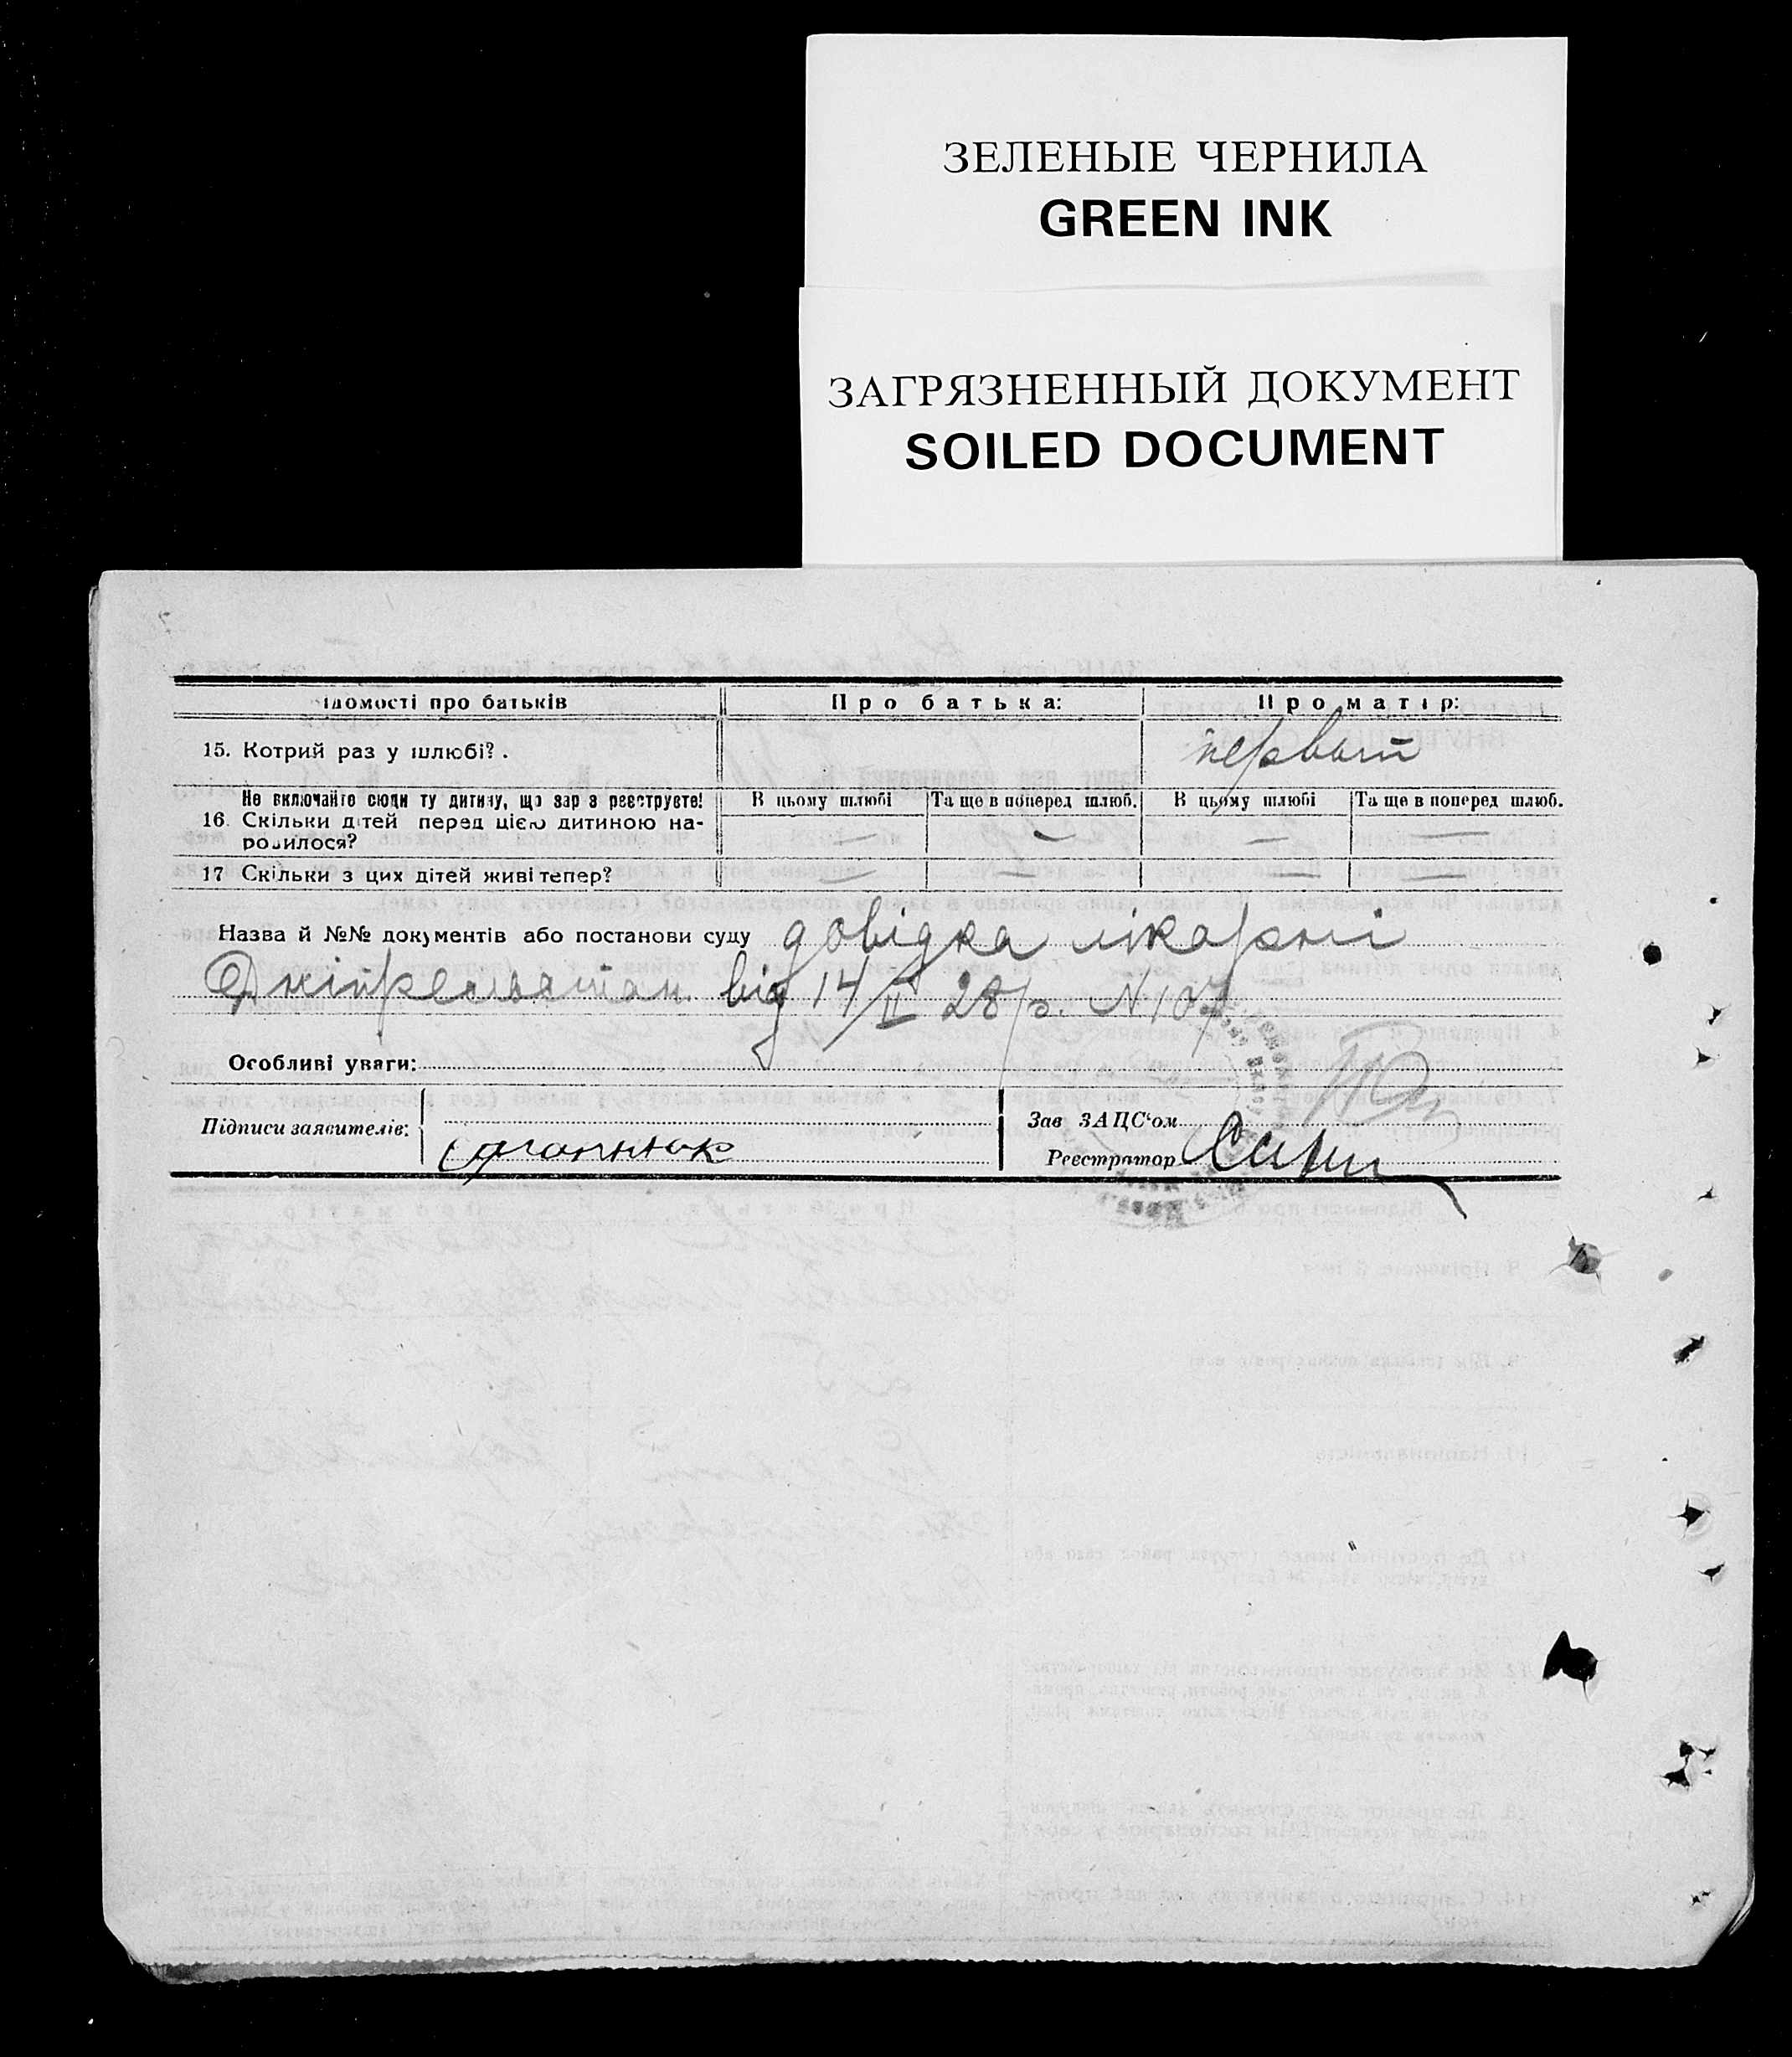 ЗЕЛЕНЫЕ ЧЕРНИЛА
GREEN INK
ЗАГРЯЗНЕННЫЙ ДОКУМЕНТ
SOILED DOCUMENT
ідомості про батьків Про батька: Про матір:
15. Котрий раз у шлюбі? . первый
Не включайте сюди ту дитину, що зараз реєструєте! В цьому шлюбі Та ще в поперед шлюб. В цьому шлюбі Та ще в поперед шлюб.
16. Скільки дітей перед цією дитиною на-
родилося? — — — —
17 Скільки з цих дітей живі тепер? — — — —
Назва й №№ документів або постанови суду довідка лікарні
від 14/II 28 р. N 107
Особливі уваги:
Підписи заявителів: Зав ЗАЦС‘ом
Реєстратор